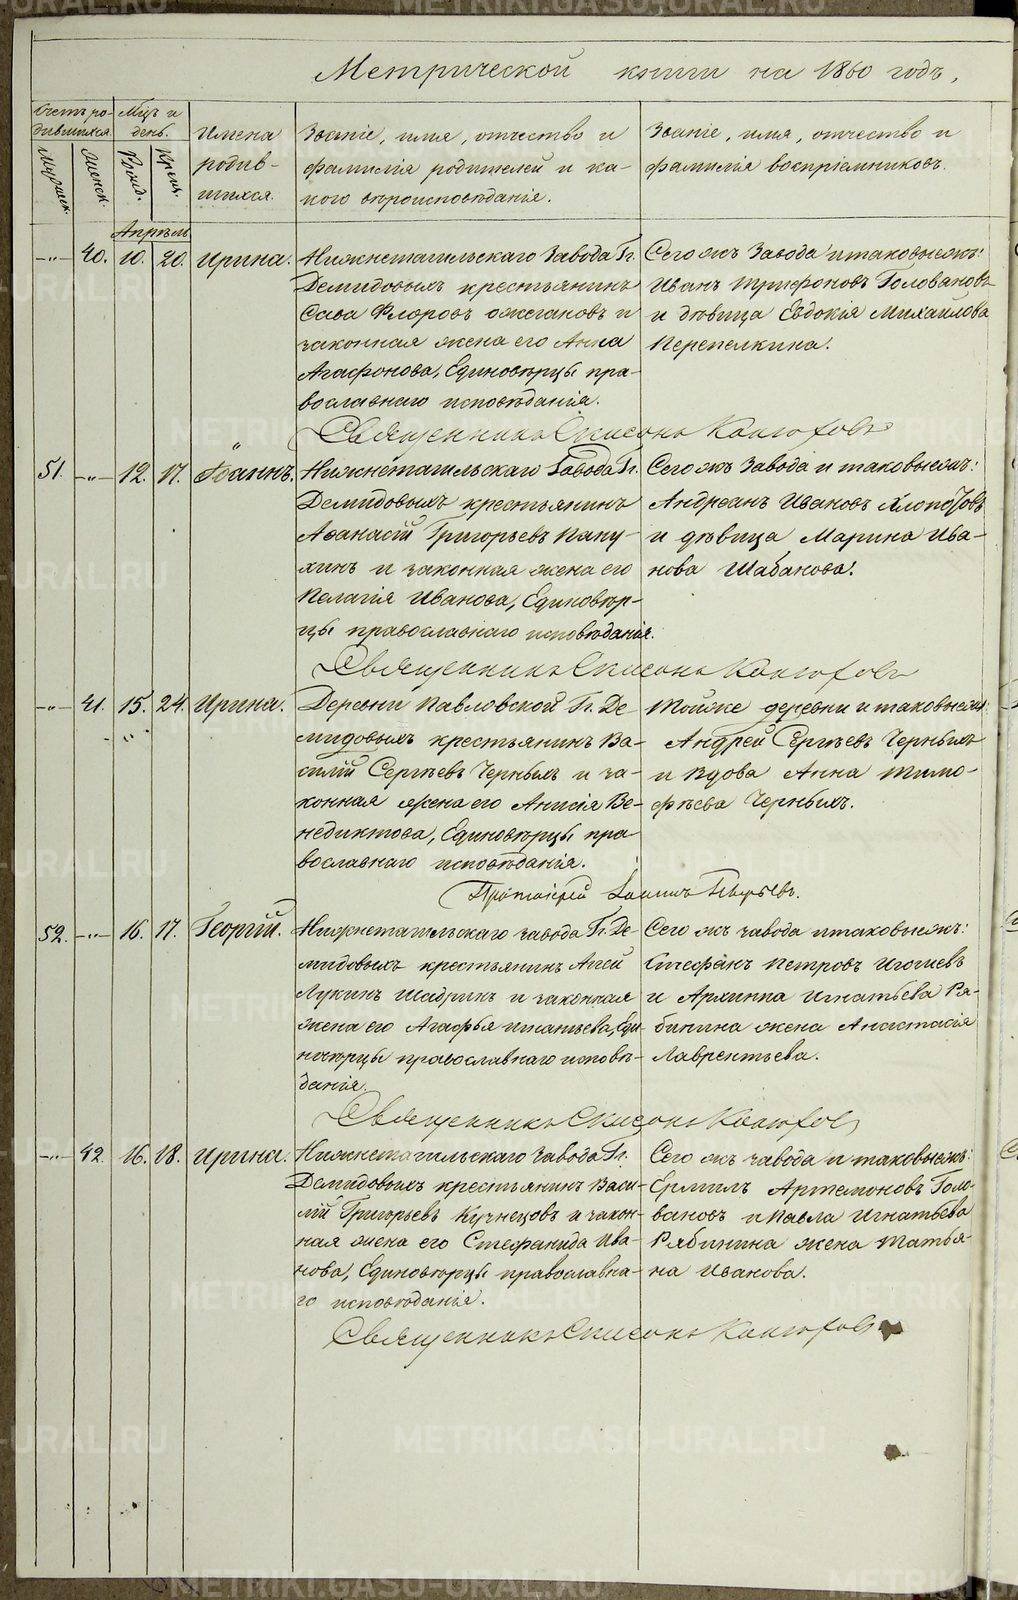 Метрической книги на 1860 годъ.
Счетъ ро-
дившихся.
Мужеск.
Женск.
Мцъ и
день.
Рожд.
Крещ.
Имена
родив-
шихся.
Званіе, имя, отчество и
фамилія родителей и ка-
кого вѣроисповѣданія.
Званіе, имя, отчество и
фамилія воспріемниковъ.
Апрѣль
-"- 40. 10. 20. Ирина.
Нижнетагильскаго Завода Гг.
Демидовыхъ крестьянинъ
Сава Флоровъ Ожегановъ и
законная жена его Анна
Агафонова, Единовѣрцы пра-
вославнаго исповѣданія.
Сего жъ Завода и таковыежъ:
Иванъ Трифоновъ Головановъ
и дѣвица Евдокія Михайлова
Перепелкина.
Священникъ Симеонъ
51. -"- 12. 17. Іоаннъ.
Нижнетагильскаго Завода Гг.
Демидовыхъ крестьянинъ
Аѳанасій Григорьевъ Папу-
хинъ и законная жена его
Пелагія Иванова, Единовѣр-
цы православнаго исповѣданія.
Сего жъ Завода и таковыежъ:
Андреанъ Ивановъ
и дѣвица Марина Ива-
нова Шабанова.
Священникъ Симеонъ
-"- 41. 15. 24. Ирина.
Деревни Павловской Гг. Де-
мидовыхъ крестьянинъ Ва-
силій Сергѣевъ Черныхъ и за-
конная жена его Анисія Ве-
недиктова, Единовѣрцы пра-
вославнаго исповѣданія.
Тойже деревни и таковыежъ
Андрей Сергѣевъ Черныхъ
и вдова Анна Тимо-
фѣева Черныхъ.
Протоіерей Іоаннъ
52. -"- 16. 17. Георгій.
Нижнетагильскаго завода Гг. Де-
мидовыхъ крестьянинъ Агей
Лукинъ Шадринъ и законная
жена его Агафья Игнатьева, Еди-
новѣрцы православнаго исповѣ-
данія.
Сего жъ завода и таковыежъ:
Стефанъ Петровъ
и Архиппа Игнатьева Ря-
бинина жена Анастасія
Лаврентьева.
Священникъ Симеонъ
-"- 42. 16. 18. Ирина.
Нижнетагильскаго Завода Гг.
Демидовыхъ крестьянинъ Васи-
лій Григорьевъ Кузнецовъ и закон-
ная жена его Стефанида Ива-
нова, Единовѣрцы православна-
го исповѣданія.
Сего жъ завода и таковыежъ:
Ермилъ Артемоновъ Голо-
вановъ и Павла Игнатьева
Рябинина жена Татья-
на Иванова.
Священникъ Симеонъ
METRIKI.GASO-URAL.RU